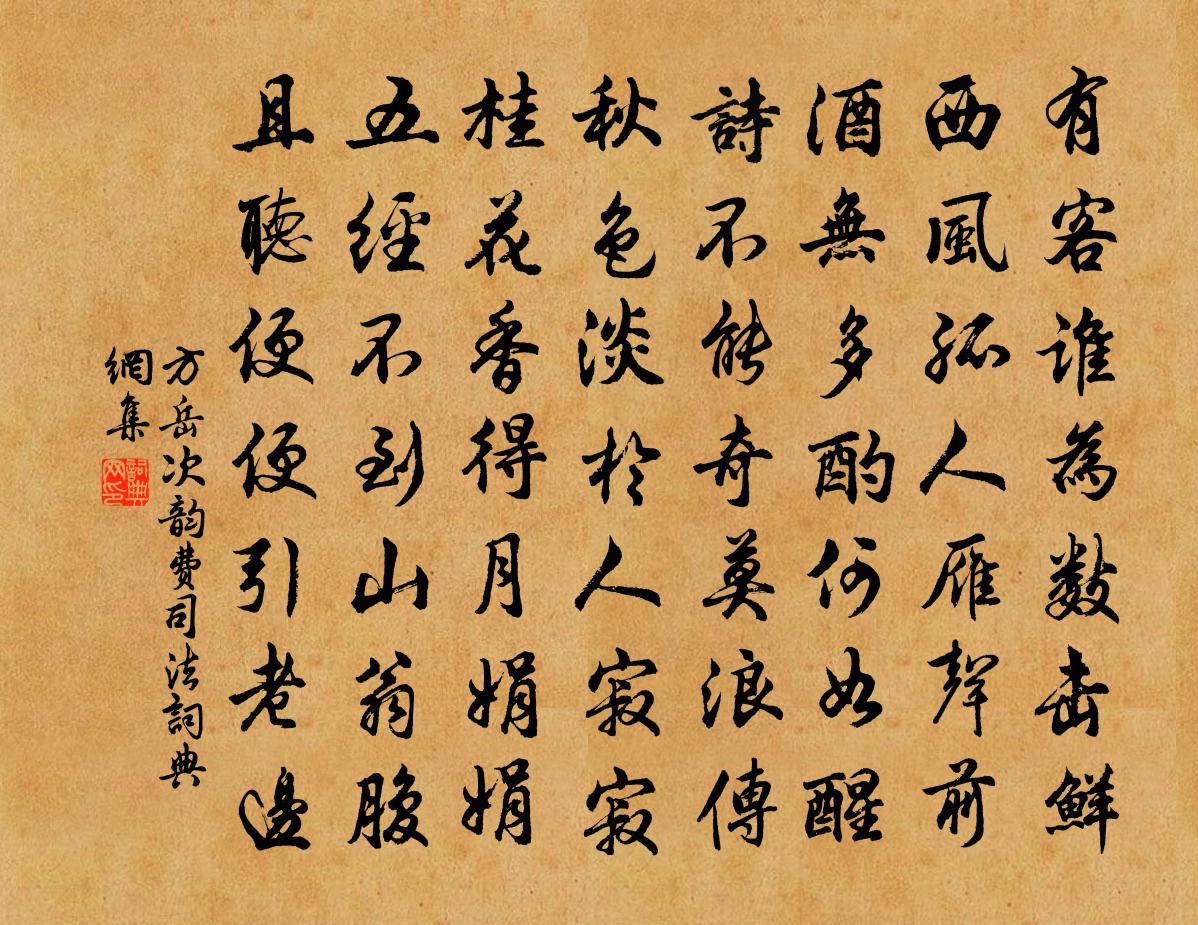 有客誰為數击鮮
西風孤人雁聲前
酒無多酌何如醒
詩不能奇莫浪傳
秋色淡於人寂寂
桂花香得月娟娟
五經不到山翁腹
且聽便便引老邊
方岳次韵費司法詞典
網集
詞典
网印